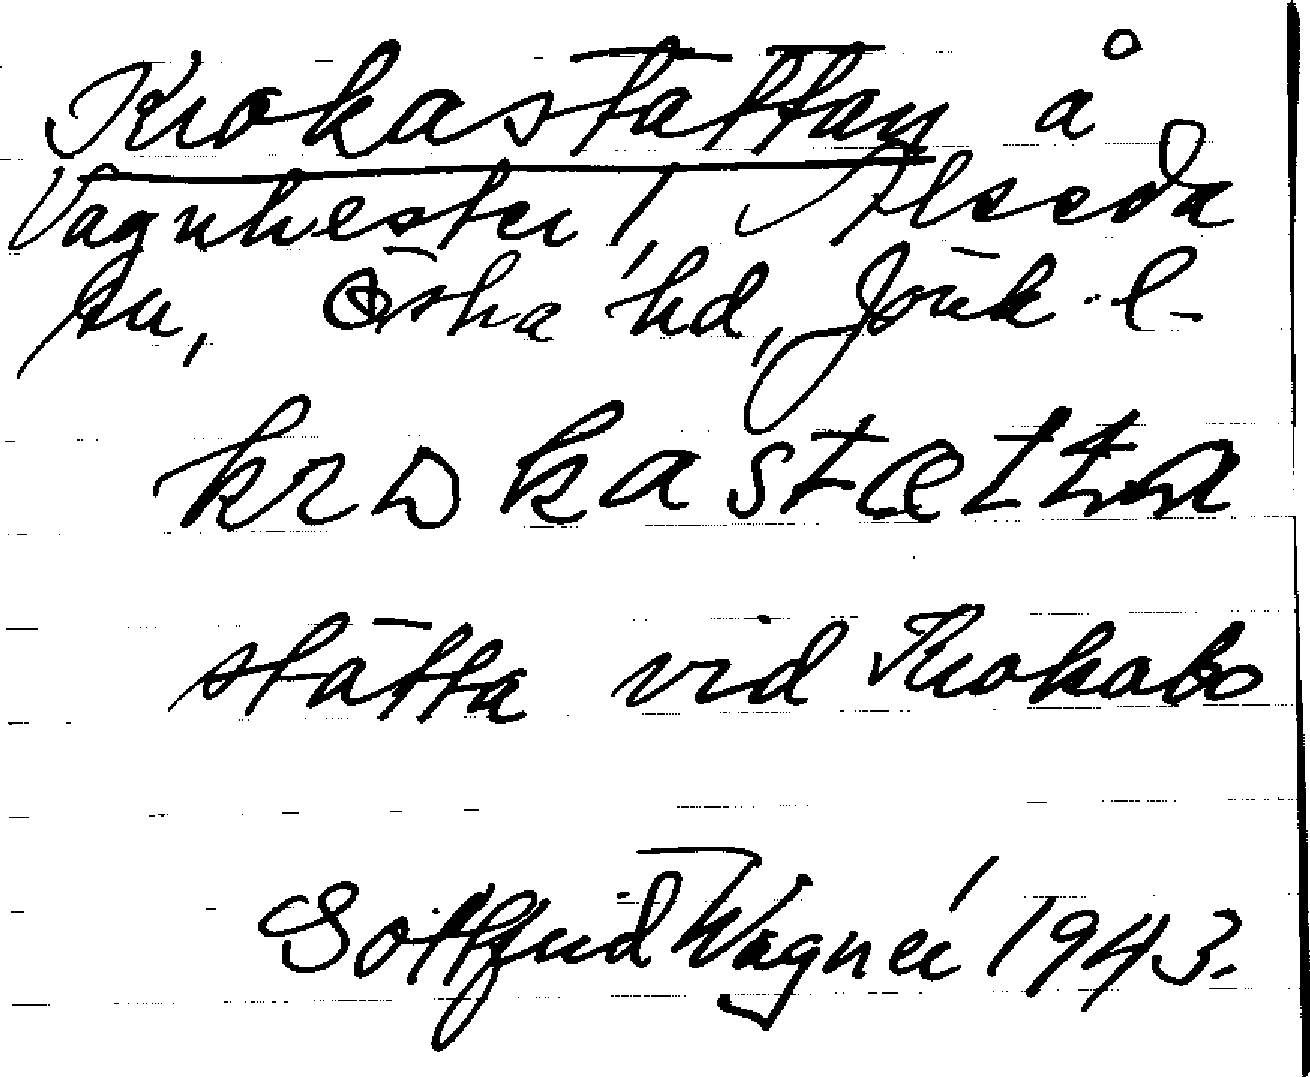 Krokastättan å
Vagnhester 1, Alseda
sn, Östra hd, Jönk. l.
krokastætta
stätta vid Krokabo
Gottfrid Wagnér 1943.